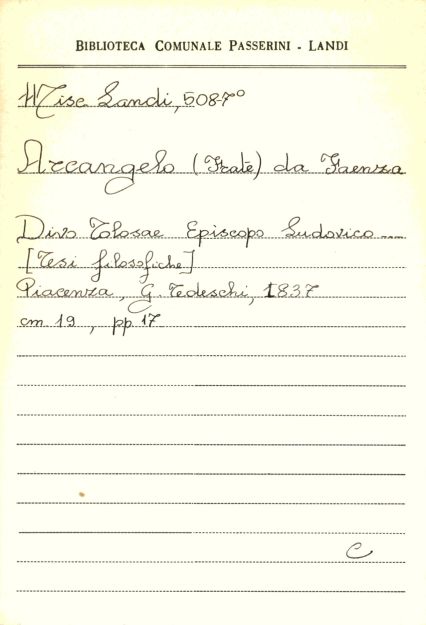 BIBLIOTECA COMUNALE PASSERINI - LANDI
Misc Landi, 508-7°
Arcangelo (Frate) da Faenza
Divo Tolosae Episcopo Ludovico ....
[Tesi filosofiche]
Piacenza, G. Tedeschi, 1837
cm 19, pp 17
C